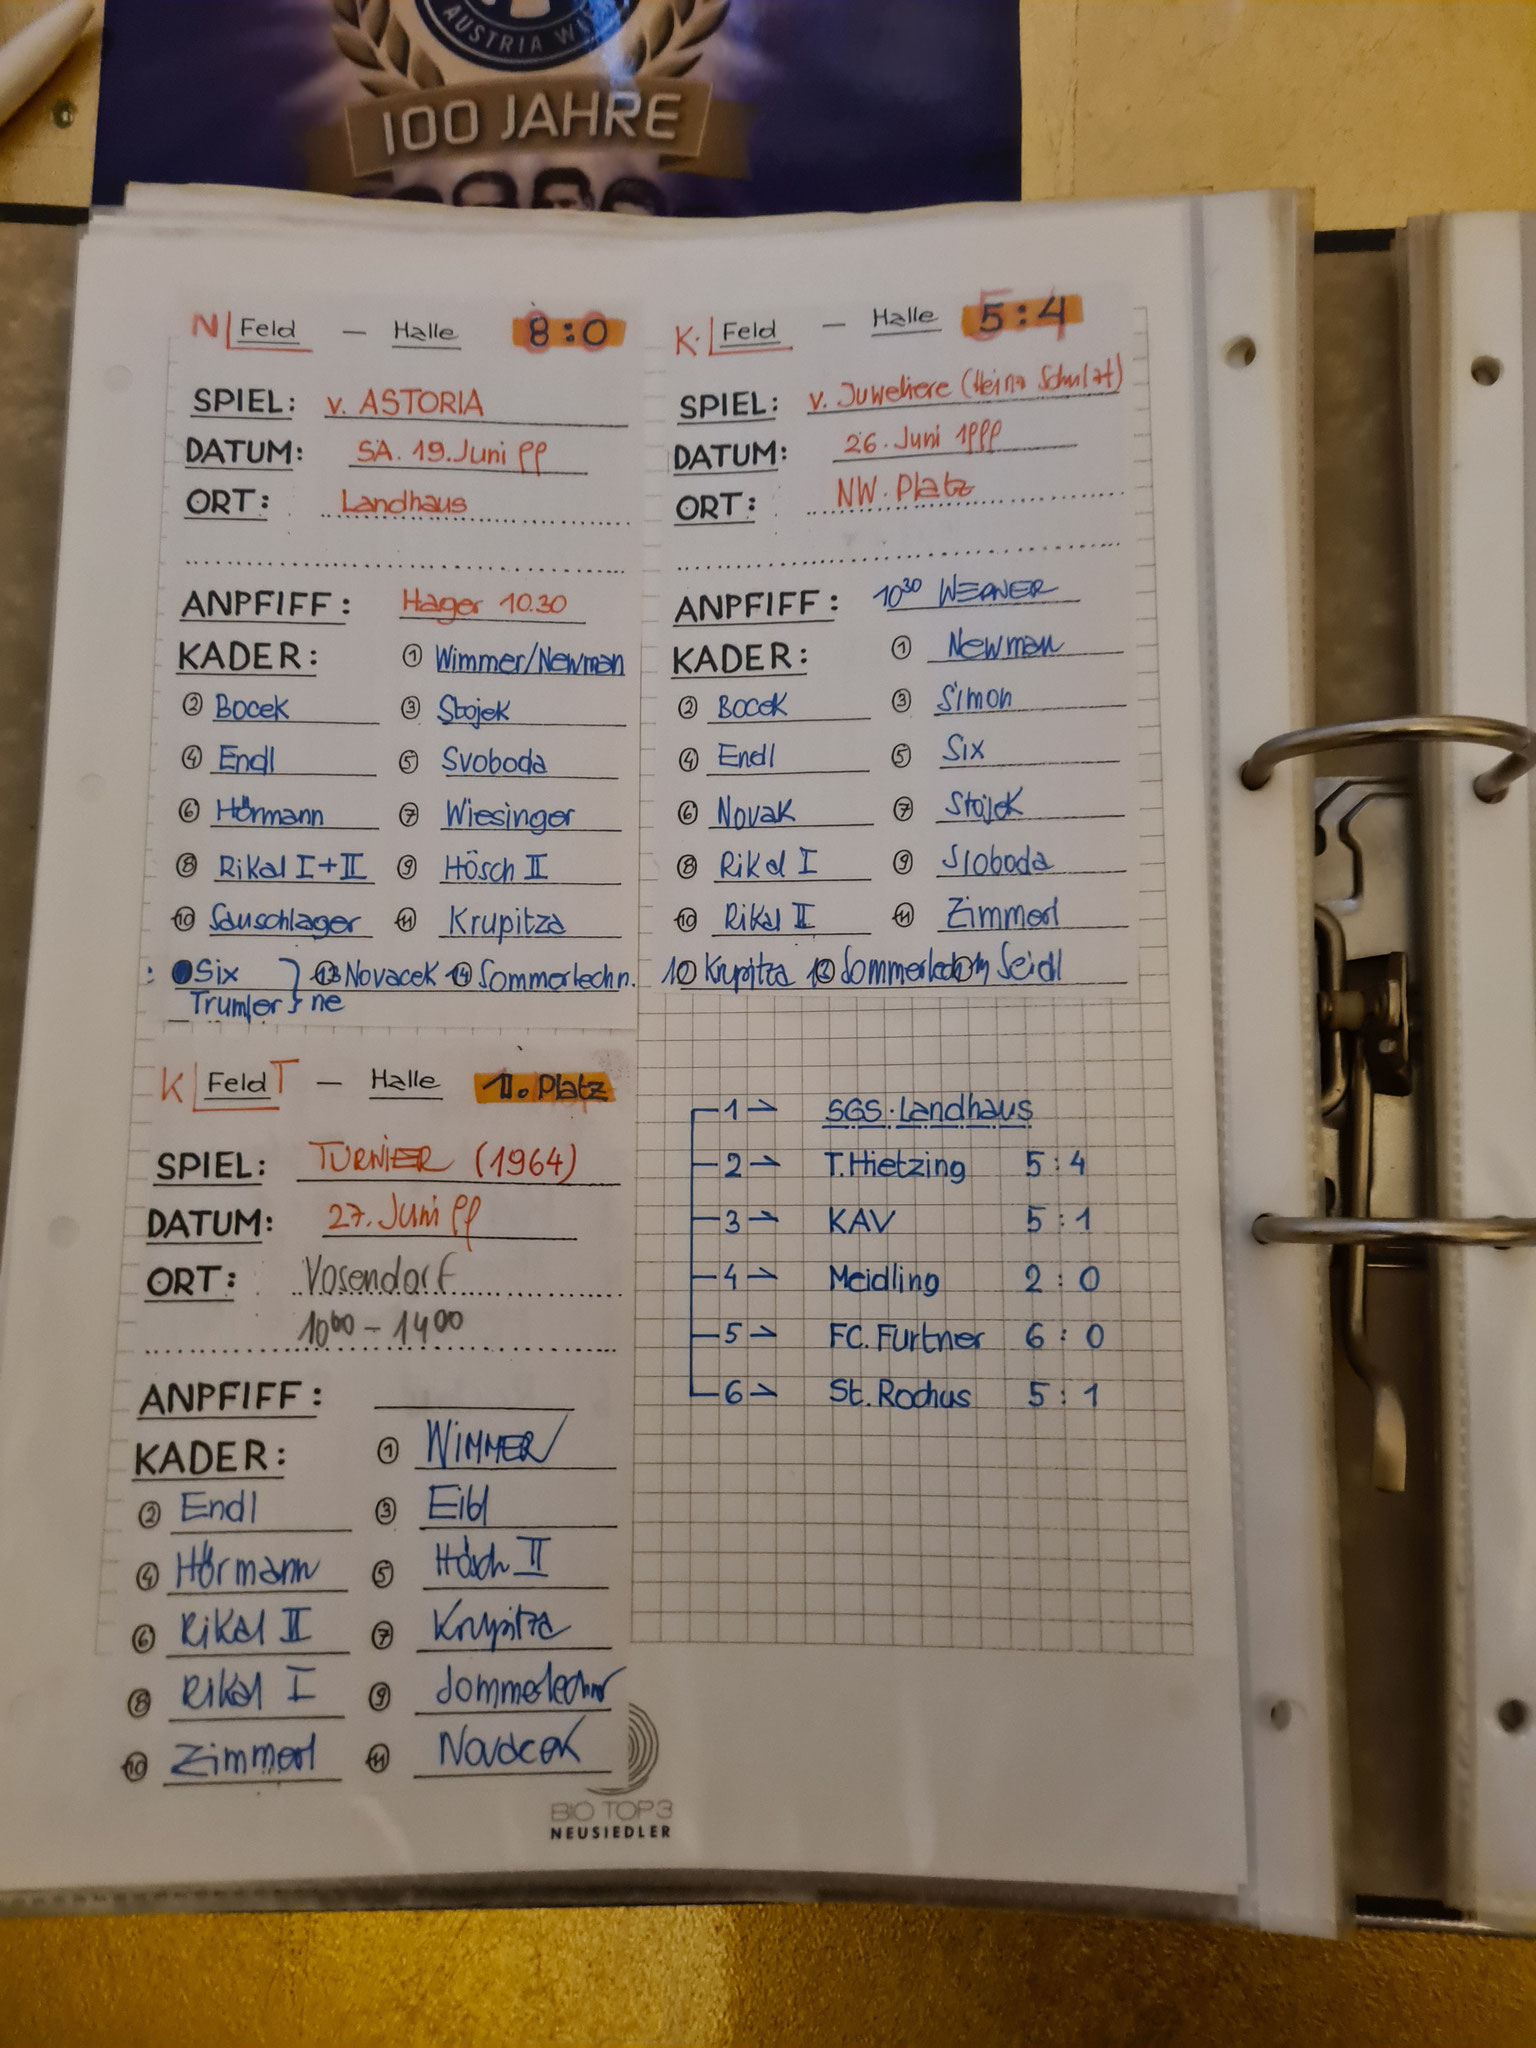 AUSTRIA WI
100 JAHRE
N Feld – Halle 8:0
SPIEL: v. ASTORIA
DATUM: SA. 19. Juni 99
ORT: Landhaus
ANPFIFF: Hager 10.30
KADER: ① Wimmer/Newman
② Bocek ③ Stojek
④ Endl ⑤ Svoboda
⑥ Hörmann ⑦ Wiesinger
⑧ Rikal I+II ⑨ Hösch II
⑩ Sauschlager ⑪ Krupitza
Six } ⑬ Novacek ⑭ Sommerlechn.
} ne
K. Feld – Halle 5:4
SPIEL: v. Juweliere (Heinz
DATUM: 26. Juni 1999
ORT: NW. Platz
ANPFIFF: 10³⁰ WERNER
KADER: ① Newman
② Bocek ③ Simon
④ Endl ⑤ Six
⑥ Novak ⑦ Stojek
⑧ Rikal I ⑨ Sloboda
⑩ Rikal II ⑪ Zimmerl
Krupitza Seidl
K Feld T – Halle 1. Platz
SPIEL: TURNIER (1964)
DATUM: 27. Juni 99
ORT: Vosendorf
10⁰⁰ – 14⁰⁰
ANPFIFF:
KADER: ① WIMMER
② Endl ③ Eibl
④ Hörmann ⑤ Hösch II
⑥ Rikal II ⑦ Krupitza
⑧ Rikal I ⑨ Sommerlechner
⑩ Zimmerl ⑪ Novacek
1 → SGS. Landhaus
2 → T. Hietzing 5:4
3 → KAV 5:1
4 → Meidling 2:0
5 → FC. Furtner 6:0
6 → St. Rochus 5:1
BIO TOP 3
NEUSIEDLER